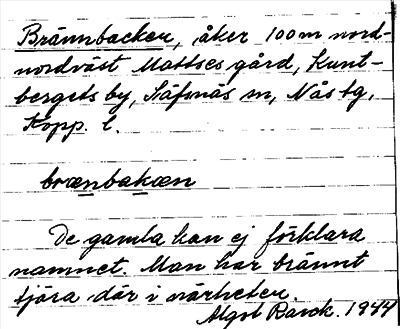 Brännbacken, åker 100 m nord-
nordväst Mattses gård, Kunt-
bergets by, Säfsnäs sn, Nås tg,
Kopp. l.
brænbakæn
De gamla kan ej förklara
namnet. Man har bränt
tjära där i närheten.
Algot Rarok. 1944